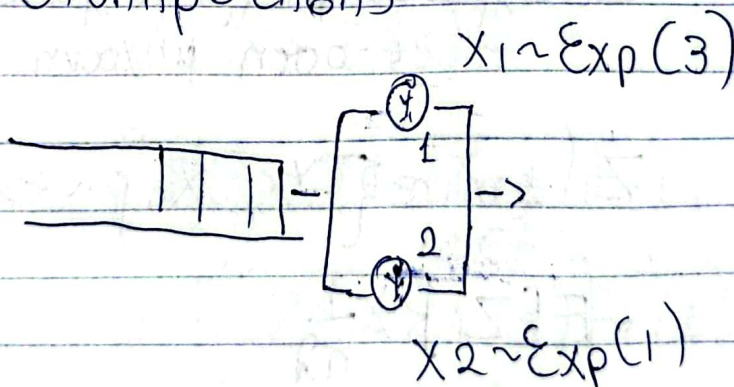 X1~Exp(3)
1
2
X2~Exp(1)